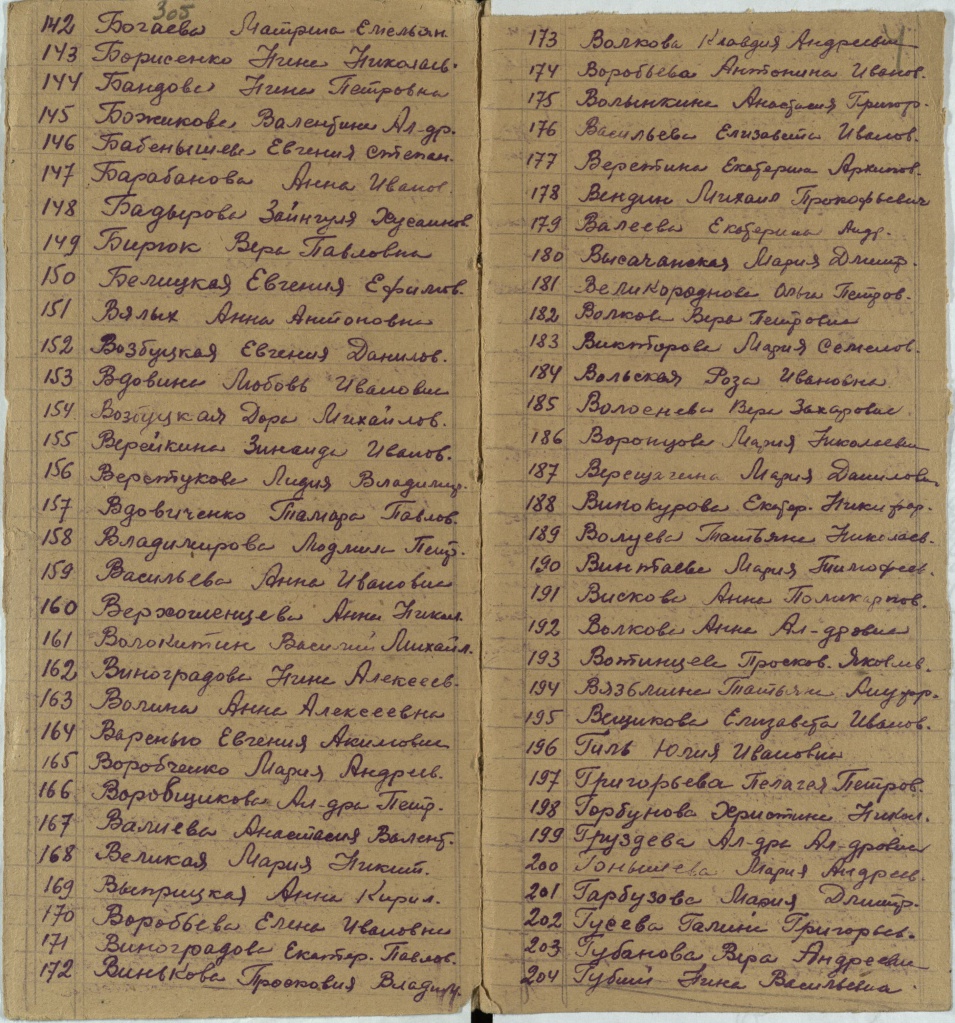 305
142 Богаева Матрена Емельян.
143 Борисенко Нина Николаев.
144 Бандова Нина Петровна
145 Божикова Валентина Ал-др.
146 Бабенышева Евгения Степан.
147 Барабанова Анна Иванов.
148 Бадырова Зайнгуля Хусаинов.
149 Бирюк Вера Павловна
150 Белицкая Евгения Ефимов.
151 Вялых Анна Антоновна
152 Возбуцкая Евгения Данилов.
153 Вдовина Любовь Ивановна
154 Возбуцкая Дора Михайлов.
155 Верейкина Зинаида Иванов.
156 Верстукова Лидия Владимир.
157 Вдовиченко Тамара Павлов.
158 Владимирова Людмила Петр.
159 Васильева Анна Ивановна
160 Верхошенцева Анна Никол.
161 Волокитин Василий Михайл.
162 Виноградова Нина Алексеев.
163 Волина Анна Алексеевна
164 Вареньго Евгения Акимовна
165 Воробченко Мария Андреев.
166 Воровщикова Ал-дра Петр.
167 Валиева Анастасия Валент.
168 Великая Мария Никит.
169 Выприцкая Анна Кирил.
170 Воробьева Елена Ивановна
171 Виноградова Екатер. Павлов.
172 Винькова Просковия Владим.
173 Волкова Клавдия Андреевна
174 Воробьева Антонина Иванов.
175 Волынкина Анастасия Григор.
176 Васильева Елизавета Иванов.
177 Веретина Екатерина Архипов.
178 Вендин Михаил Прокофьевич
179 Валеева Екатерина Андр.
180 Высачанская Мария Дмитр.
181 Великороднова Ольга Петров.
182 Волкова Вера Петровна
183 Викторова Мария Семенов.
184 Вольская Роза Ивановна
185 Волоснева Вера Захаровна
186 Воронцова Мария Николаевна
187 Верещагина Мария Даниловн.
188 Винокурова Екатер. Никифор.
189 Волуева Татьяна Николаев.
190 Винтаева Мария Тимофеев.
191 Вискова Анна Поликарпов.
192 Волкова Анна Ал-дровна
193 Вотинцева Просков. Яковлв.
194 Вязьмина Татьяна
195 Вещикова Елизавета Иванов.
196 Гиль Юлия Ивановна
197 Григорьева Пелагея Петров.
198 Горбунова Христина Никол.
199 Груздева Ал-дра Ал-дровна
200 Гонышева Мария Андреев.
201 Гарбузова Мария Дмитр.
202 Гусева Галина Григорьев.
203 Губанова Вера Андреевна
204 Губий Нина Васильевна.